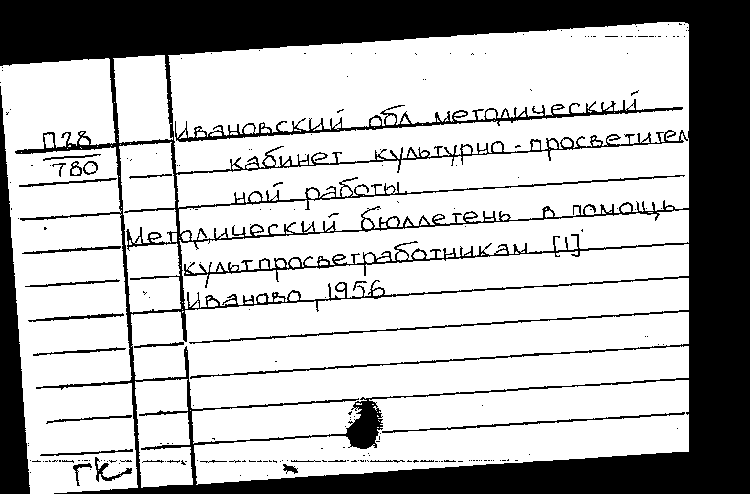 П28
780
Ивановский обл. методический
кабинет культурно-просветител
ной работы.
Методический бюллетень в помощь
культпросветработникам [1]
Иваново, 1956
ГК